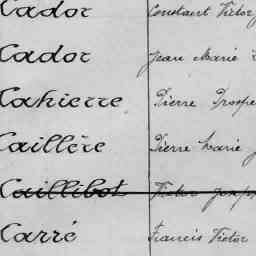 Cador Constant Victor
Cador Jean Marie
Cahierre Pierre Prosper
Caillère Pierre Marie
Caillibot Victor
Carré Francis Victor